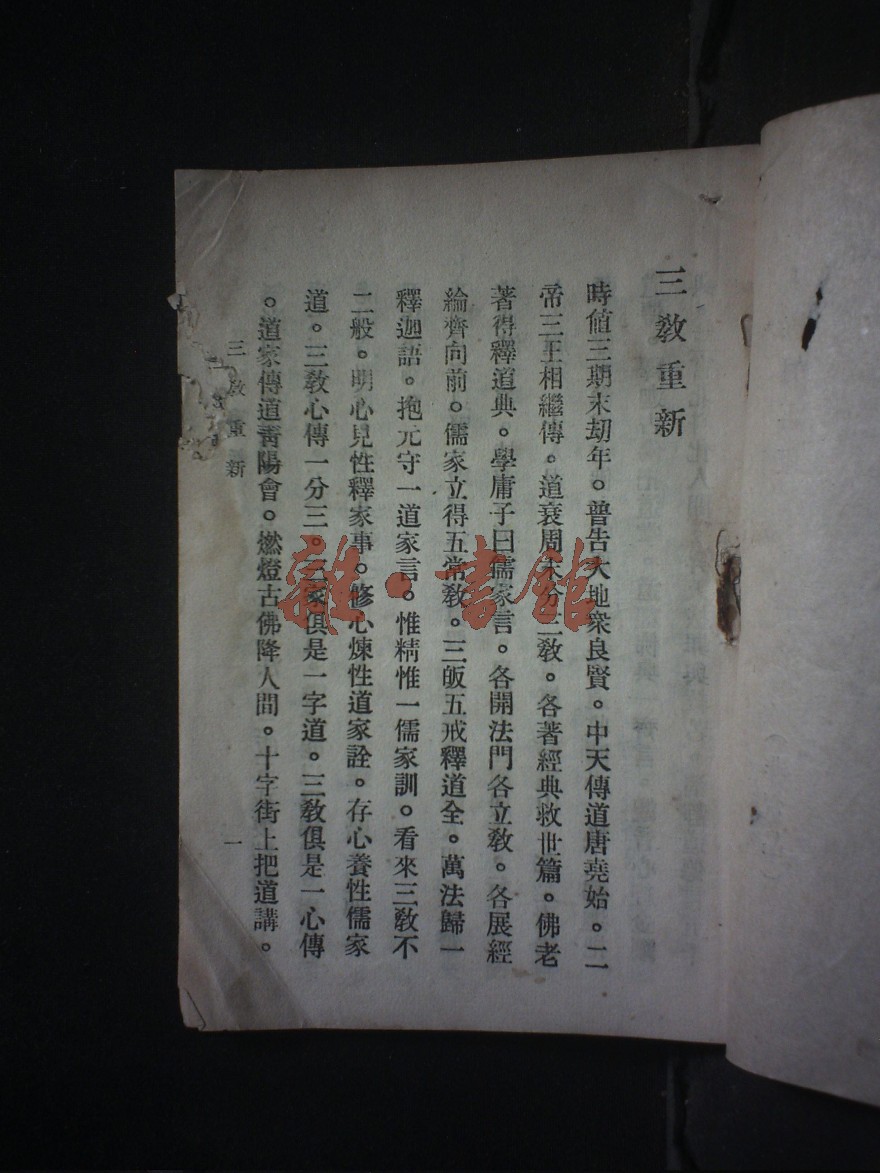 三教重新
時值三期末刧年。普告大地衆良賢。中天傳道唐堯始。二
帝三王相繼傳。道衰周末分三教。各著經典救世篇。佛老
著得釋道典。學庸子曰儒家言。各開法門各立教。各展經
綸齊向前。儒家立得五常教。三皈五戒釋道全。萬法歸一
釋迦語。抱元守一道家言。惟精惟一儒家訓。看來三教不
二般。明心見性釋家事。修心煉性道家詮。存心養性儒家
道。三教心傳一分三。三家俱是一字道。三教俱是一心傳
。道家傳道靑陽會。燃燈古佛降人間。十字街上把道講。
三教重新
一
雜·書館